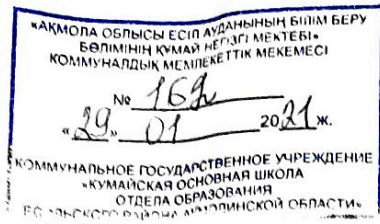 «АҚМОЛА ОБЛЫСЫ ЕСІЛ АУДАНЫНЫҢ БІЛІМ БЕРУ
БӨЛІМІНІҢ ҚҰМАЙ НЕГІЗГІ МЕКТЕБІ»
КОММУНАЛДЫҚ МЕМЛЕКЕТТІК МЕКЕМЕСІ
№ 169
«29» 01 2021 ж.
КОММУНАЛЬНОЕ ГОСУДАРСТВЕННОЕ УЧРЕЖДЕНИЕ
«КУМАЙСКАЯ ОСНОВНАЯ ШКОЛА
ОТДЕЛА ОБРАЗОВАНИЯ
ЕСИЛЬСКОГО РАЙОНА АКМОЛИНСКОЙ ОБЛАСТИ»